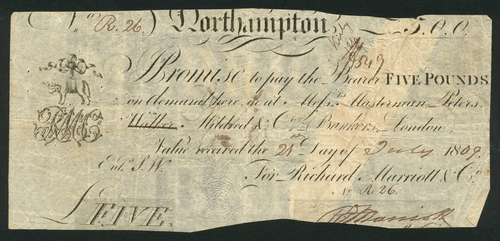 No R. 26. Northampton £5.0.0
9549
I Promise to pay the Bearer FIVE POUNDS
on demand here, or at Messrs Masterman Peters
Walker Mildred & Co Bankers London
Value received the 28 Day of July 1809
Entd S.W. For Richard Marriott & Co
No R. 26.
£FIVE. Rd Marriott